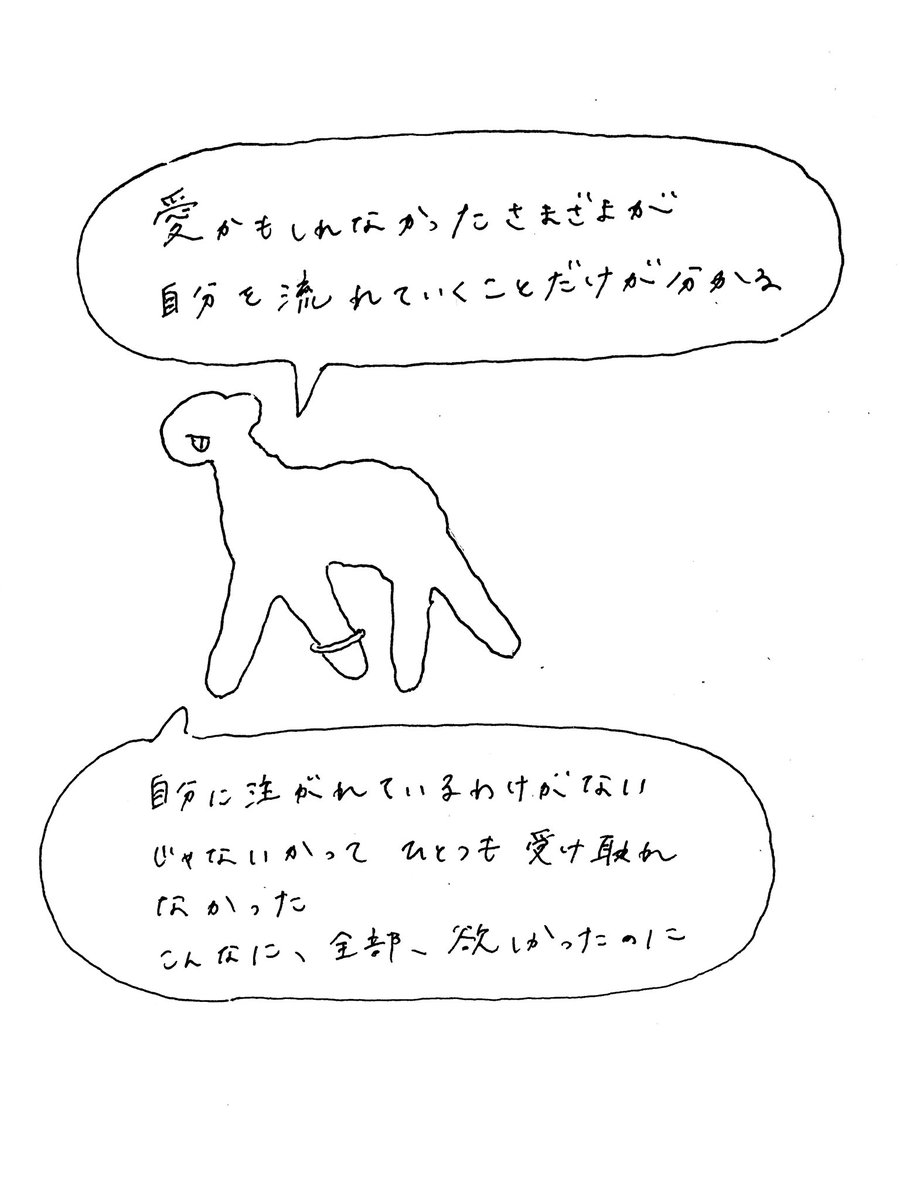 愛かもしれなかったさまざまが
自分を流れていくことだけが分かる
自分に注がれているわけがない
じゃないかって ひとつも 受け取れ
なかった
こんなに、全部、欲しかったのに